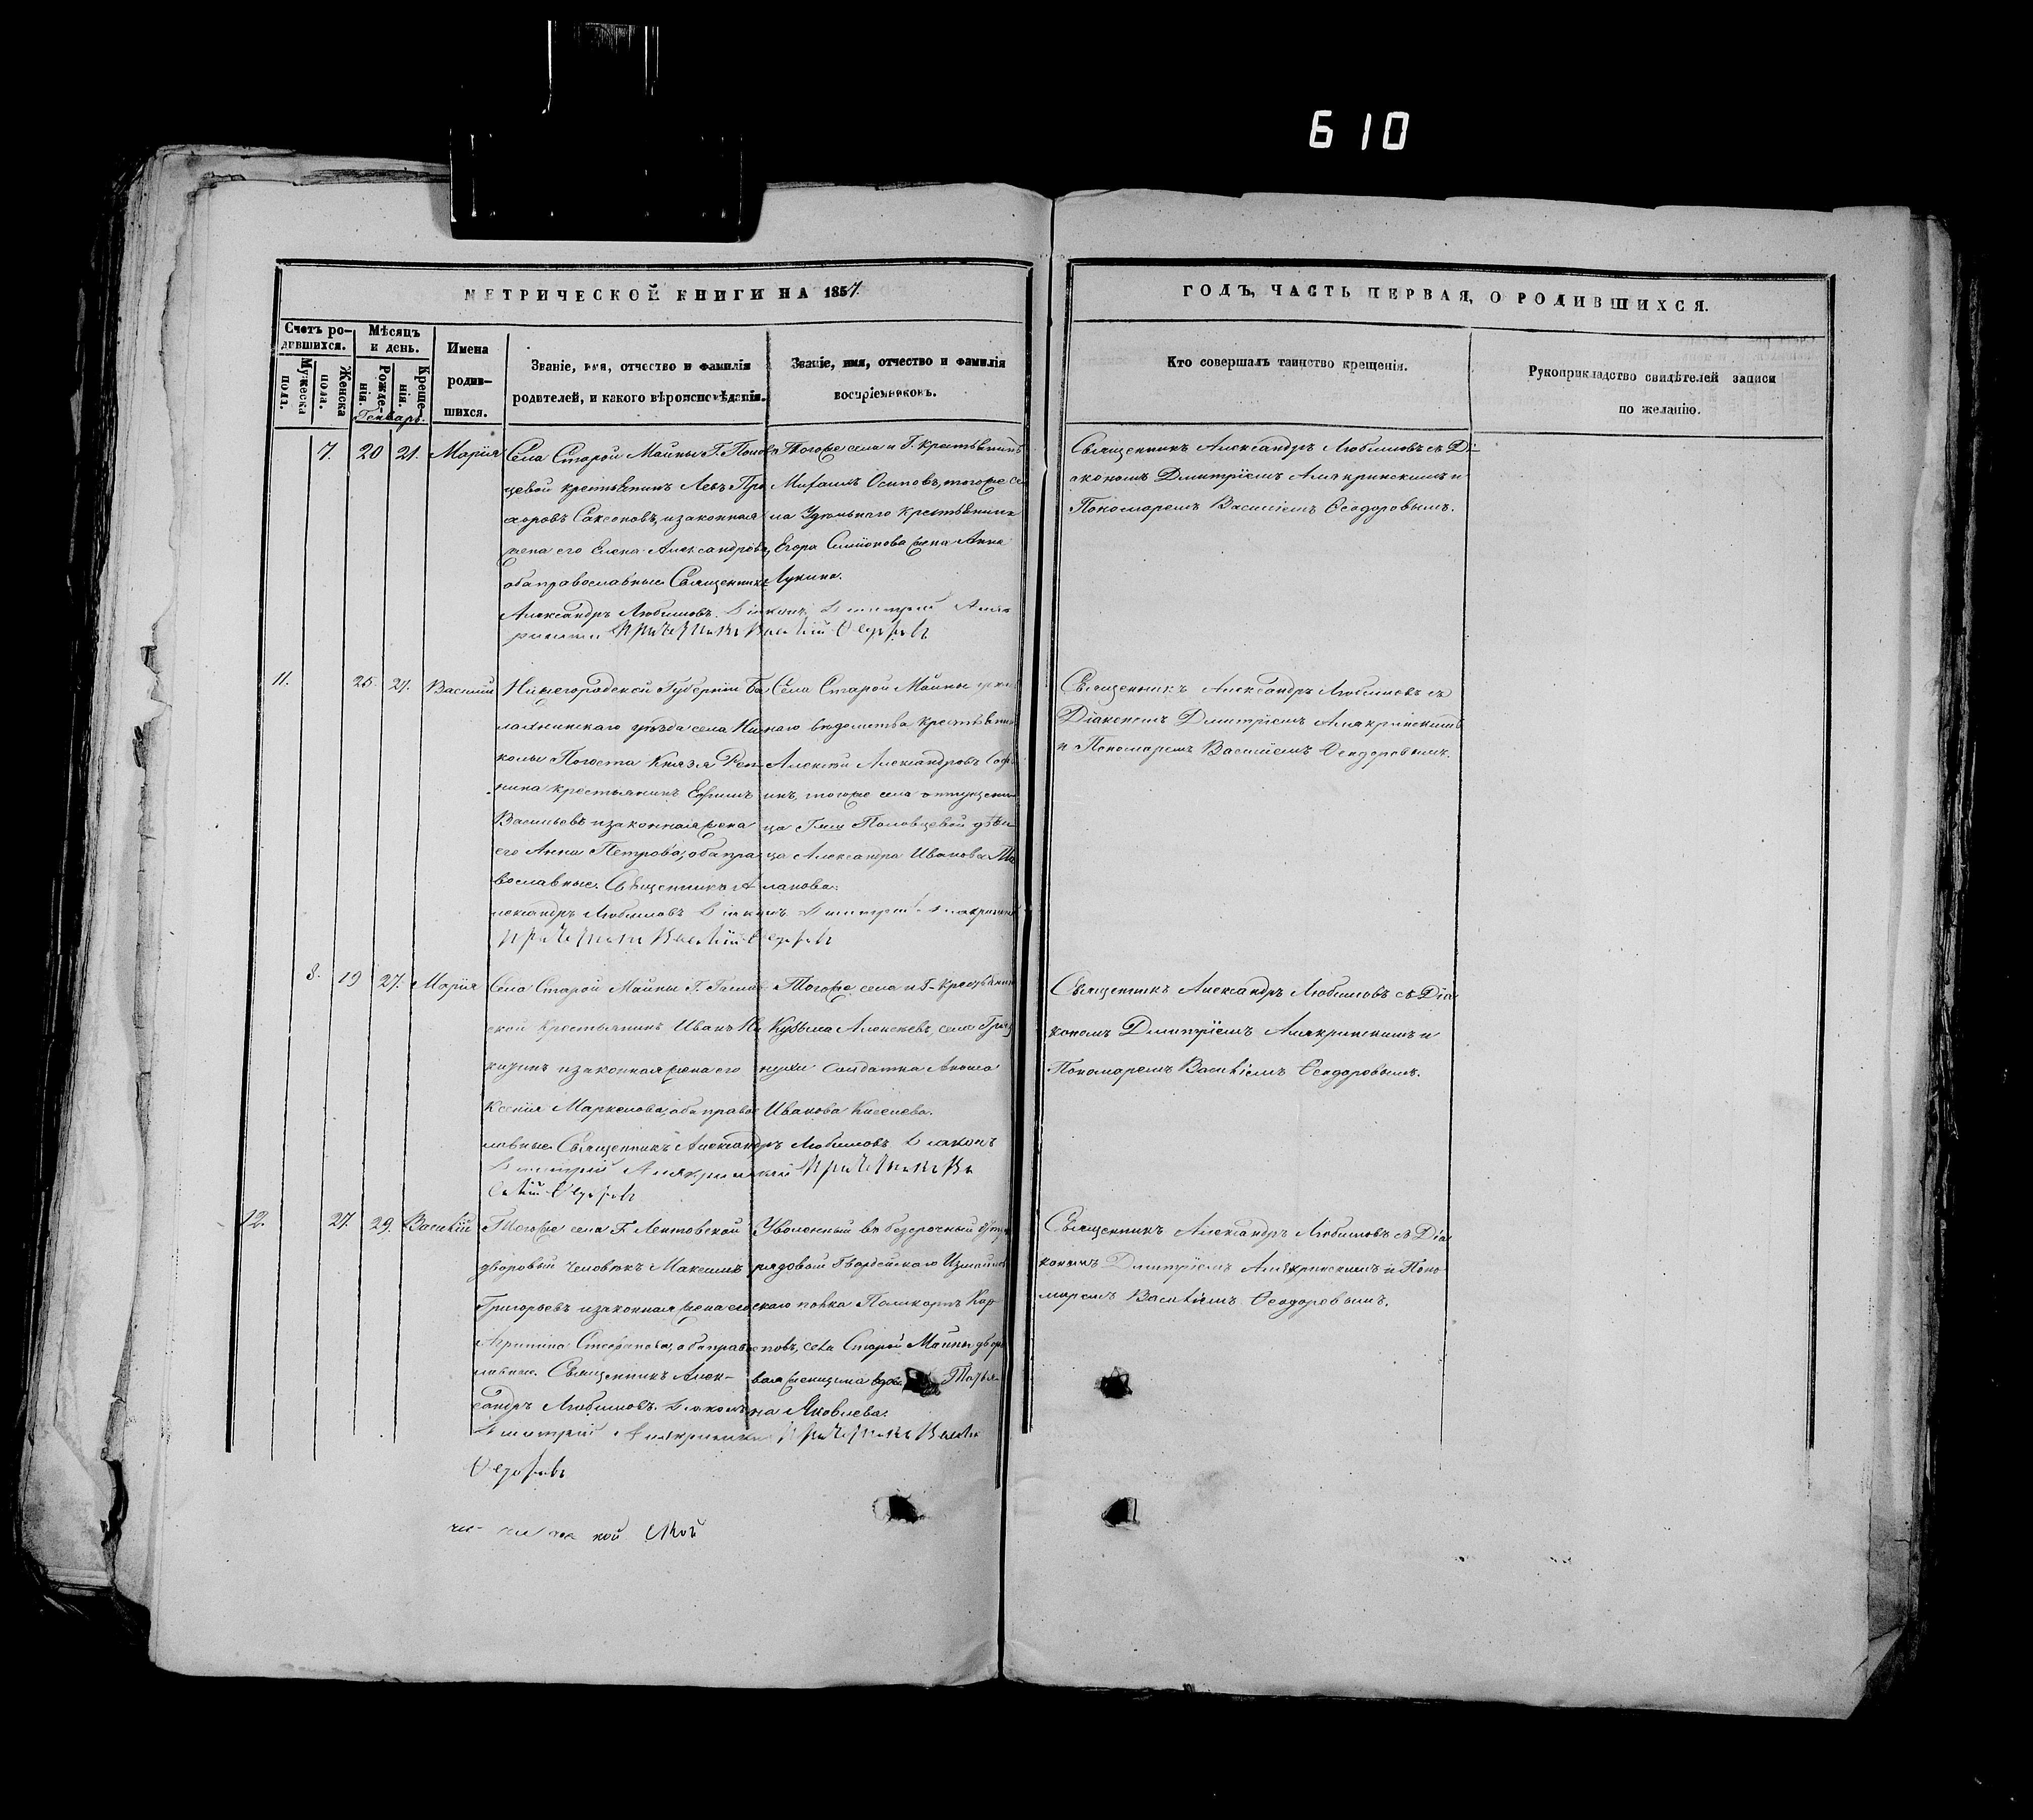 610
МЕТРИЧЕСКОЙ КНИГИ НА 1857.
ГОДЪ, ЧАСТЬ ПЕРВАЯ, О РОДИВШИХСЯ.
Счетъ ро-
дившихся.
Мужеска
пола.
Женска
пола.
Мѣсяцъ
и день.
Рожде-
нія.
Креще-
нія.
Генварь.
Имена
родив-
шихся.
Званіе, имя, отчество и фамилія
родителей, и какого вѣроисповѣданія.
Званіе, имя, отчество и фамилія
воспріемниковъ.
Кто совершалъ таинство крещенія.
Рукоприкладство свидѣтелей записи
по желанію.
7. 20 21. Марія
Села Старой Майны Г. Полов
цевой крестьянинъ Левъ Про
хоровъ Саксоновъ, и законная
жена его Елена Александрова,
оба православные. Священникъ
Александръ Любимовъ. Діаконъ Димитрій Аля
кринскій Причетникъ Василій Ѳедоровъ
Тогоже села и Г. крестьянинъ
Михаилъ Осиповъ, тогоже се
ла Удѣльнаго крестьянина
Егора Семіонова жена Анна
Лукина.
Священникъ Александръ Любимовъ съ Ді-
акономъ Димитріемъ Алякринскимъ и
Пономаремъ Василіемъ Ѳеодоровымъ.
11. 25. 27. Василій
Нижегородской Губерніи Ба
лахнинскаго уѣзда села Ни
колы Погоста Князя Реп-
нина крестьянинъ Ефимъ
Васильевъ и законная жена
его Анна Петрова, оба пра-
вославные. Священникъ А
лександръ Любимовъ Діаконъ Димитрій Алякринскій
Причетникъ Василій Ѳедоровъ
Села Старой Майны
наго вѣдомства крестьянинъ
Алексѣй Александровъ Саф
инъ, тогоже села отпущени
ца Г-жи Половцевой дѣви
ца Александра Иванова
ланова.
Священникъ Александръ Любимовъ съ
Діакономъ Димитріемъ Алякринскимъ
и Пономаремъ Василіемъ Ѳеодоровымъ.
8. 19 27. Марія
Села Старой Майны Г.
ской Крестьянинъ Иванъ
и законная жена его
Ксенія Маркелова, оба правос
лавные. Священникъ Александръ Любимовъ Діаконъ
Димитрій Алякринскій Причетникъ Ва
силій Ѳедоровъ
Тогоже села и Г- крестьянинъ
Кузьма Алексѣевъ, села Гряз
нухи солдатка
Иванова Киселева.
Священникъ Александръ Любимовъ съ Діа
кономъ Димитріемъ Алякринскимъ и
Пономаремъ Василіемъ Ѳеодоровымъ.
12. 27. 29. Василій
Тогоже села Г. Лентовской
дворовый человѣкъ Максимъ
Григорьевъ и законная жена его
Агрипина Стефанова, оба правос
лавные. Священникъ Алек-
сандръ Любимовъ. Діаконъ
Димитрій Алякринскій Причетникъ Василій
Ѳедоровъ
Уволенный въ безсрочный отпу
рядовой Гвардейскаго Измайлов
скаго полка Поликарпъ Кар
повъ, села Старой Майны дворо
вая женщина вдова Татья
на Яковлева.
Священникъ Александръ Любимовъ съ Діа
кономъ Димитріемъ Алякринскимъ и Поно
маремъ Василіемъ Ѳеодоровымъ.